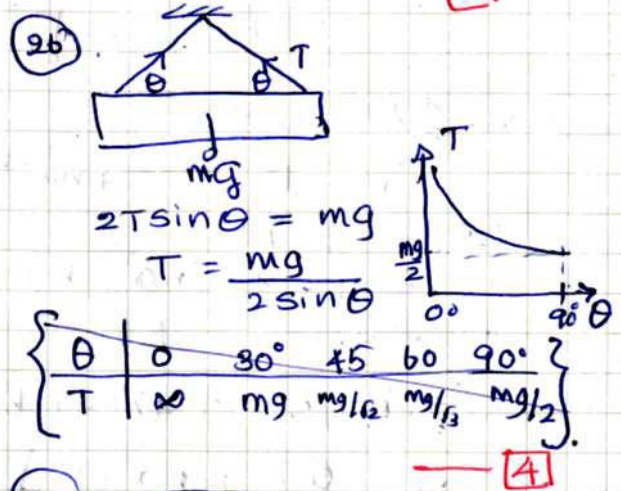 26
θ θ T
mg
T
2T sin θ = mg
mg/2
T = mg / 2 sin θ
0° 90° θ
θ 0 30° 45 60 90°
T ∞ mg mg/√2 mg/√3 mg/2
4